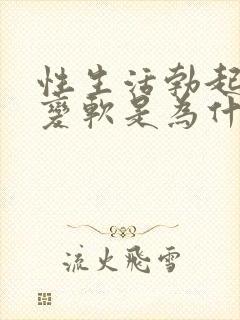 性生活勃起
變軟是為什
流火飛雪